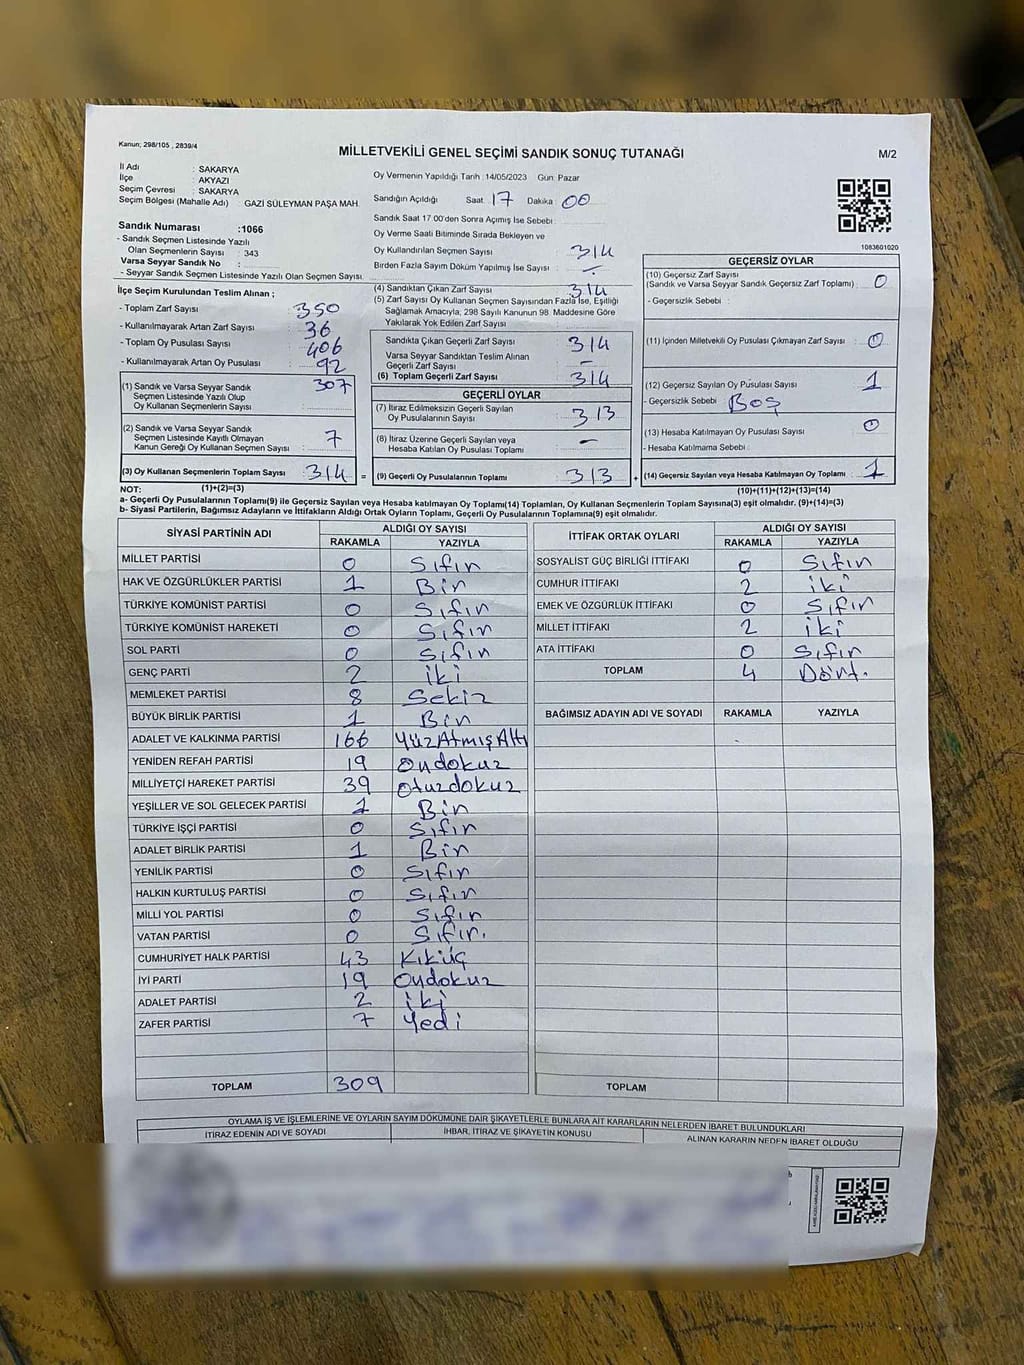 Kanun; 298/105 , 2839/4
MİLLETVEKİLİ GENEL SEÇİMİ SANDIK SONUÇ TUTANAĞI
M/2
İl Adı : SAKARYA
İlçe : AKYAZI
Seçim Çevresi : SAKARYA
Seçim Bölgesi (Mahalle Adı) : GAZİ SÜLEYMAN PAŞA MAH.
Sandık Numarası :1066
- Sandık Seçmen Listesinde Yazılı
Olan Seçmenlerin Sayısı : 343
Varsa Seyyar Sandık No :
- Seyyar Sandık Seçmen Listesinde Yazılı Olan Seçmen Sayısı
Oy Vermenin Yapıldığı Tarih :14/05/2023 Gün: Pazar
Sandığın Açıldığı Saat : 17 Dakika : 00
Sandık Saat 17 00'den Sonra Açımış İse Sebebi :
Oy Verme Saati Bitiminde Sırada Bekleyen ve
Oy Kullandırılan Seçmen Sayısı : 314
Birden Fazla Sayım Döküm Yapılmış İse Sayısı :
1083601020
İlçe Seçim Kurulundan Teslim Alınan ;
- Toplam Zarf Sayısı : 350
- Kullanılmayarak Artan Zarf Sayısı : 36
- Toplam Oy Pusulası Sayısı : 406
- Kullanılmayarak Artan Oy Pusulası : 92
(1) Sandık ve Varsa Seyyar Sandık 307
Seçmen Listesinde Yazılı Olup
Oy Kullanan Seçmenlerin Sayısı :
(2) Sandık ve Varsa Seyyar Sandık
Seçmen Listesinde Kayıtlı Olmayan 7
Kanun Gereği Oy Kullanan Seçmen Sayısı :
(3) Oy Kullanan Seçmenlerin Toplam Sayısı : 314 =
(1)+(2)=(3)
(4) Sandıktan Çıkan Zarf Sayısı : 314
(5) Zarf Sayısı Oy Kullanan Seçmen Sayısından Fazla İse, Eşitliği
Sağlamak Amacıyla, 298 Sayılı Kanunun 98. Maddesine Göre
Yakılarak Yok Edilen Zarf Sayısı :
Sandıkta Çıkan Geçerli Zarf Sayısı : 314
Varsa Seyyar Sandıktan Teslim Alınan
Geçerli Zarf Sayısı : -
(6) Toplam Geçerli Zarf Sayısı : 314
GEÇERLİ OYLAR
(7) İtiraz Edilmeksizin Geçerli Sayılan
Oy Pusulalarının Sayısı : 313
(8) İtiraz Üzerine Geçerli Sayılan veya
Hesaba Katılan Oy Pusulası Toplamı : -
(9) Geçerli Oy Pusulalarının Toplamı : 313 +
GEÇERSİZ OYLAR
(10) Geçersiz Zarf Sayısı
(Sandık ve Varsa Seyyar Sandık Geçersiz Zarf Toplamı) : 0
- Geçersizlik Sebebi :
(11) İçinden Milletvekili Oy Pusulası Çıkmayan Zarf Sayısı : 0
(12) Geçersiz Sayılan Oy Pusulası Sayısı : 1
- Geçersizlik Sebebi : Boş
(13) Hesaba Katılmayan Oy Pusulası Sayısı : 0
- Hesaba Katılmama Sebebi :
(14) Geçersiz Sayılan veya Hesaba Katılmayan Oy Toplamı : 1
(10)+(11)+(12)+(13)=(14)
NOT:
a- Geçerli Oy Pusulalarının Toplamı(9) ile Geçersiz Sayılan veya Hesaba katılmayan Oy Toplamı(14) Toplamları, Oy Kullanan Seçmenlerin Toplam Sayısına(3) eşit olmalıdır. (9)+(14)=(3)
b- Siyasi Partilerin, Bağımsız Adayların ve İttifakların Aldığı Ortak Oyların Toplamı, Geçerli Oy Pusulalarının Toplamına(9) eşit olmalıdır.
SİYASİ PARTİNİN ADI ALDIĞI OY SAYISI
RAKAMLA YAZIYLA
MİLLET PARTİSİ 0 Sıfır
HAK VE ÖZGÜRLÜKLER PARTİSİ 1 Bir
TÜRKİYE KOMÜNİST PARTİSİ 0 Sıfır
TÜRKİYE KOMÜNİST HAREKETİ 0 Sıfır
SOL PARTİ 0 Sıfır
GENÇ PARTİ 2 iki
MEMLEKET PARTİSİ 8 Sekiz
BÜYÜK BİRLİK PARTİSİ 1 Bir
ADALET VE KALKINMA PARTİSİ 166 YüzAtmışAltı
YENİDEN REFAH PARTİSİ 19 Ondokuz
MİLLİYETÇİ HAREKET PARTİSİ 39 Otuzdokuz
YEŞİLLER VE SOL GELECEK PARTİSİ 1 Bir
TÜRKİYE İŞÇİ PARTİSİ 0 Sıfır
ADALET BİRLİK PARTİSİ 1 Bir
YENİLİK PARTİSİ 0 Sıfır
HALKIN KURTULUŞ PARTİSİ 0 Sıfır
MİLLİ YOL PARTİSİ 0 Sıfır
VATAN PARTİSİ 0 Sıfır.
CUMHURİYET HALK PARTİSİ 43 Kıküç
İYİ PARTİ 19 Ondokuz
ADALET PARTİSİ 2 iki
ZAFER PARTİSİ 7 Yedi
TOPLAM 309
İTTİFAK ORTAK OYLARI ALDIĞI OY SAYISI
RAKAMLA YAZIYLA
SOSYALİST GÜÇ BİRLİĞİ İTTİFAKI 0 Sıfır
CUMHUR İTTİFAKI 2 iki
EMEK VE ÖZGÜRLÜK İTTİFAKI 0 Sıfır
MİLLET İTTİFAKI 2 iki
ATA İTTİFAKI 0 Sıfır
TOPLAM 4 Dört.
BAĞIMSIZ ADAYIN ADI VE SOYADI RAKAMLA YAZIYLA
TOPLAM
OYLAMA İŞ VE İŞLEMLERİNE VE OYLARIN SAYIM DÖKÜMÜNE DAİR ŞİKAYETLERLE BUNLARA AİT KARARLARIN NELERDEN İBARET BULUNDUKLARI
İTİRAZ EDENİN ADI VE SOYADI İHBAR, İTİRAZ VE ŞİKAYETİN KONUSU ALINAN KARARIN NEDEN İBARET OLDUĞU